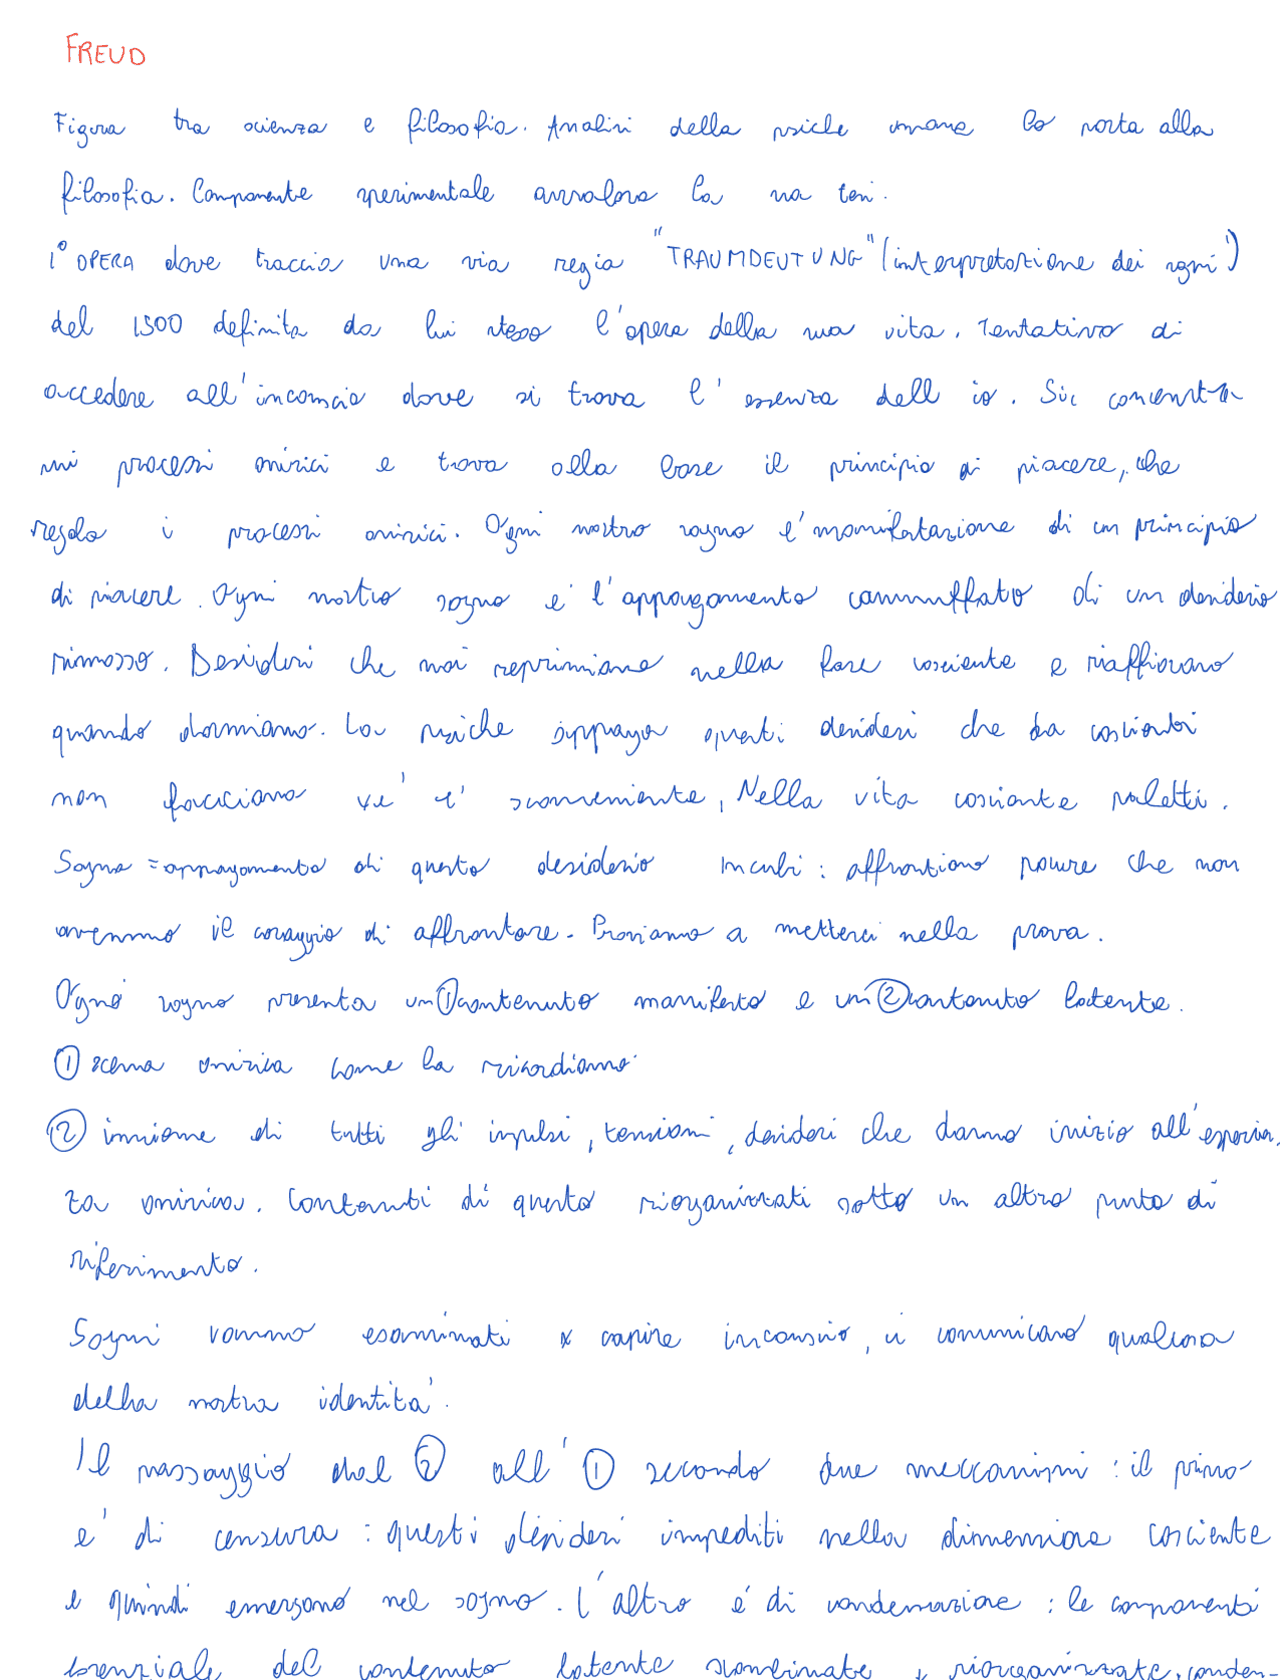 FREUD
Figura tra scienza e filosofia. Analisi della psiche umana lo porta alla
filosofia. Componente sperimentale avvalora la sua tesi.
1° OPERA dove traccia una via regia "TRAUMDEUTUNG" (interpretazione dei sogni)
del 1500 definita da lui stesso l'opera della sua vita. Tentativo di
accedere all'inconscio dove si trova l'essenza dell io. Si concentra
sui processi onirici e trova alla base il principio di piacere, che
regola i processi onirici. Ogni nostro sogno e' manifestazione di un principio
di piacere. Ogni nostro sogno e' l'appagamento cammuffato di un desiderio
rimosso. Desideri che noi reprimiamo nella fase cosciente e riaffiorano
quando dormiamo. La psiche appaga questi desideri che da coscienti
non facciamo xe' e' sconveniente, Nella vita cosciente
Sogno = appagamento di questo desiderio Incubi : affrontiamo paure che non
avemmo il coraggio di affrontare. Proviamo a metterci nella prova.
Ogni sogno presenta un ① contenuto manifesto e un ② contenuto latente.
① scena onirica come la ricordiamo
② insieme di tutti gli impulsi, tensioni, desideri che danno inizio all'esperien
za onirica. Contenuti di questo riorganizzati sotto un altro punto di
riferimento.
Sogni vanno esaminati x capire inconscio, ci comunicano qualcosa
della nostra identita'.
Il passaggio dal ② all' ① secondo due meccanismi : il primo
e' di censura : questi desideri impediti nella dimensione cosciente
e quindi emergono nel sogno. L'altro é di condensazione : le componenti
essenziale del contenuto latente scombinate e riorganizzate, conden-